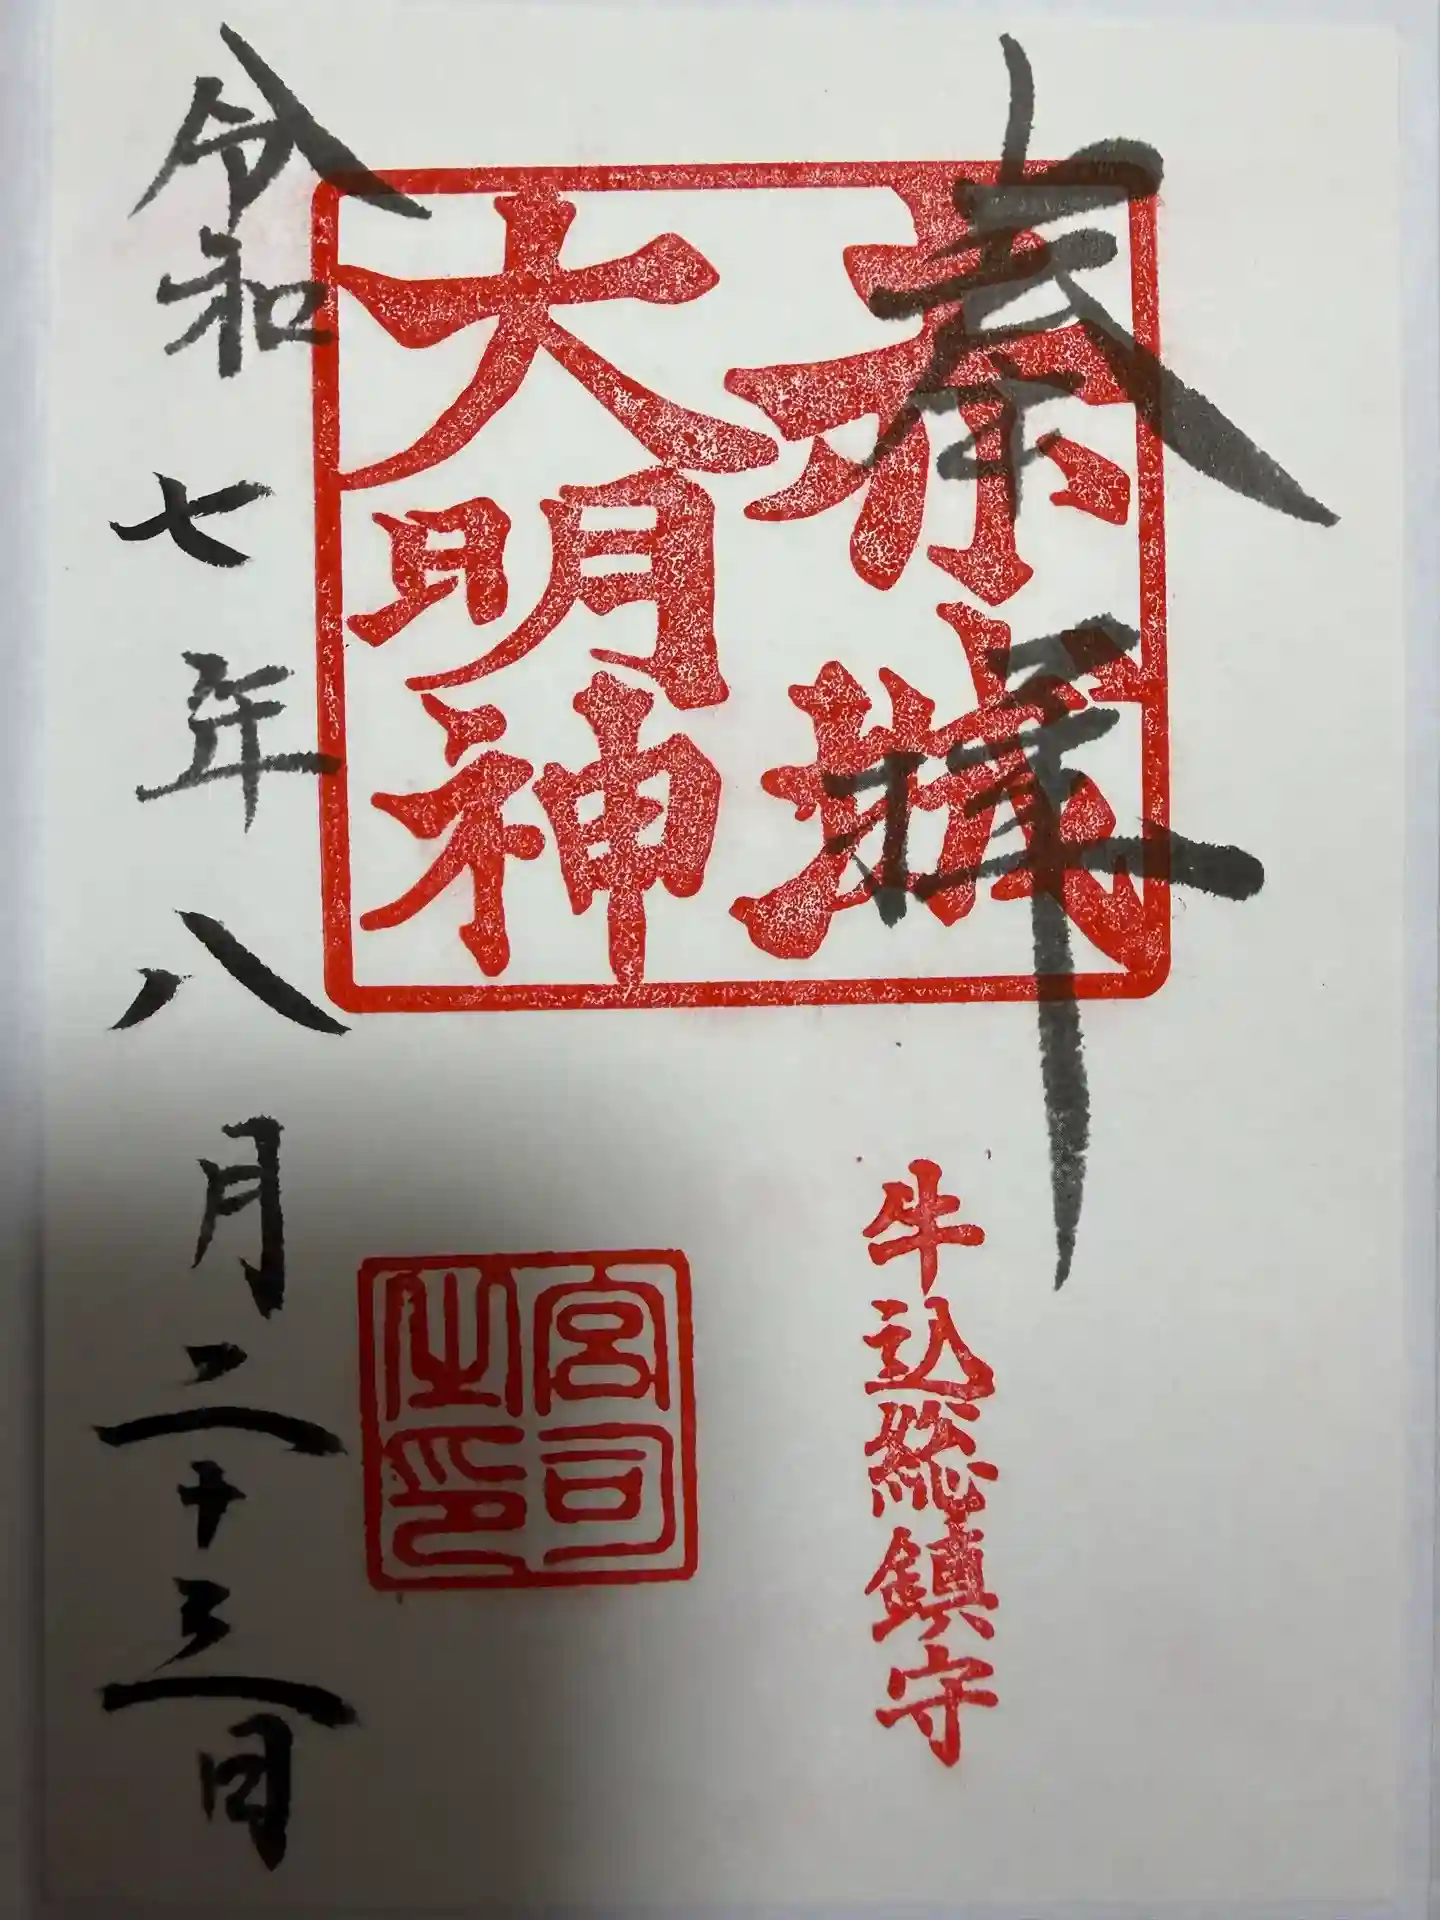 奉拝
赤城
大明神
牛込総鎮守
宮司
之印
令和七年八月二十三日